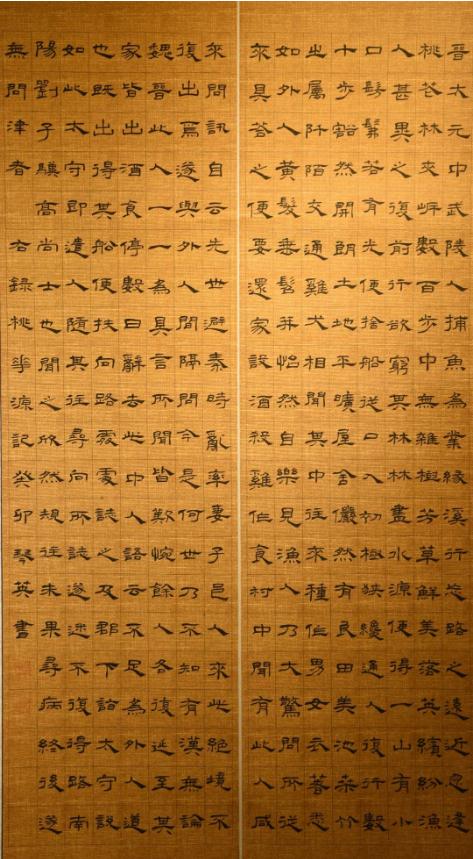 晉太元中武陵人捕魚為業緣溪行忘路之遠近忽逢
桃花林夾岸數百步中無雜樹芳草鮮美落英繽紛漁
人甚異之復前行欲窮其林林盡水源便得一山有小
口髣髴若有光便捨船從口入初極狹纔通人復行數
十步豁然開朗土地平曠屋舍儼然有良田美池桑竹
之屬阡陌交通雞犬相聞其中往來種作男女衣著悉
如外人黃髮垂髫并怡然自樂見漁人乃大驚問所從
來具答之便要還家設酒殺雞作食村中聞有此人咸
來問訊自云先世避秦時亂率妻子邑人來此絕境不
復出焉遂與外人間隔問今是何世乃不知有漢無論
魏晉此人一一為具言所聞皆歎惋餘人各復延至其
家皆出酒食停數日辭去此中人語云不足為外人道
也既出得其船便扶向路處處誌之及郡下詣太守說
如此太守即遣人隨其往尋向所誌遂迷不復得路南
陽劉子驥高尚士也聞之欣然規往未果尋病終後遂
無問津者右錄桃華源記癸卯琴英書